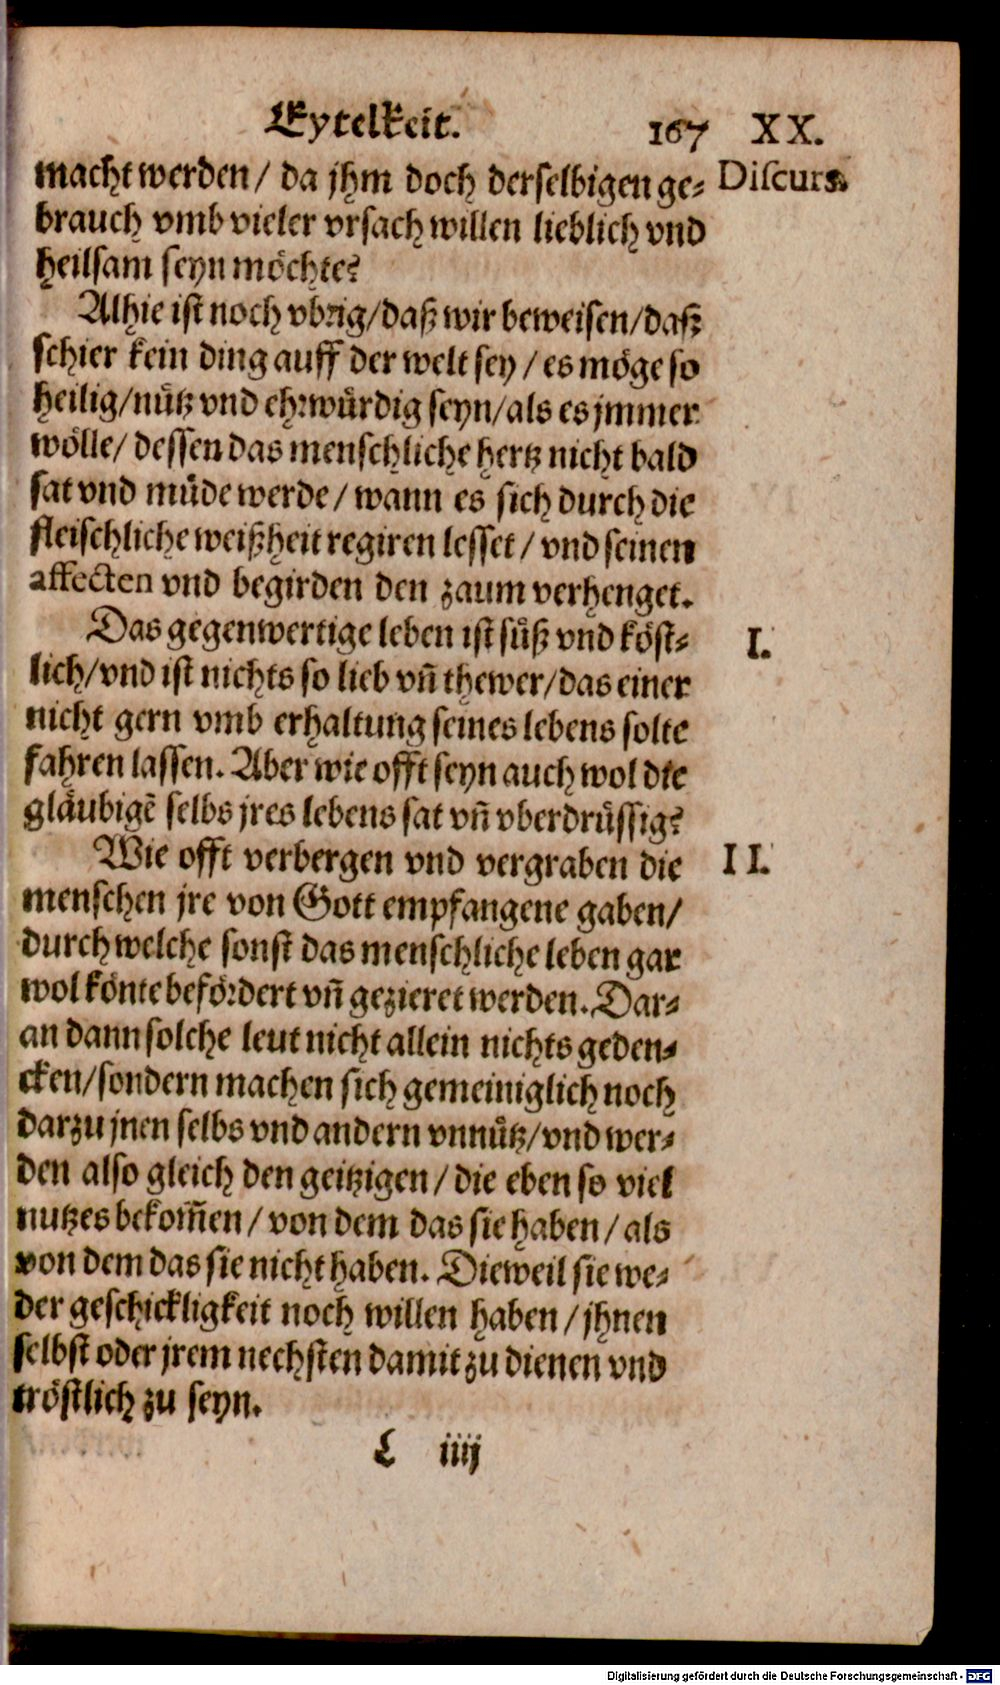 Eytelkeit. 167 XX.
macht werden/ da jhm doch derselbigen ge- Discurs.
brauch vmb vieler vrsach willen lieblich vnd
heilsam seyn möchte?
Alhie ist noch vbrig/daß wir beweisen/daß
schier kein ding auff der welt sey/ es möge so
heilig/nütz vnd ehrwürdig seyn/als es jmmer
wölle/ dessen das menschliche hertz nicht bald
sat vnd müde werde/ wann es sich durch die
fleischliche weißheit regiren lesset/ vnd seinen
affecten vnd begirden den zaum verhenget.
Das gegenwertige leben ist süß vnd köst- I.
lich/vnd ist nichts so lieb vñ thewer/das einer
nicht gern vmb erhaltung seines lebens solte
fahren lassen. Aber wie offt seyn auch wol die
gläubigē selbs jres lebens sat vñ vberdrüssig?
Wie offt verbergen vnd vergraben die II.
menschen jre von Gott empfangene gaben/
durch welche sonst das menschliche leben gar
wol könte befördert vñ gezieret werden. Dar-
an dann solche leut nicht allein nichts geden-
cken/sondern machen sich gemeiniglich noch
darzu jnen selbs vnd andern vnnütz/vnd wer-
den also gleich den geitzigen/ die eben so viel
nutzes bekom̃en/ von dem das sie haben/ als
von dem das sie nicht haben. Dieweil sie we-
der geschickligkeit noch willen haben/ jhnen
selbst oder jrem nechsten damit zu dienen vnd
tröstlich zu seyn.
L iiij
Digitalisierung gefördert durch die Deutsche Forschungsgemeinschaft - DFG